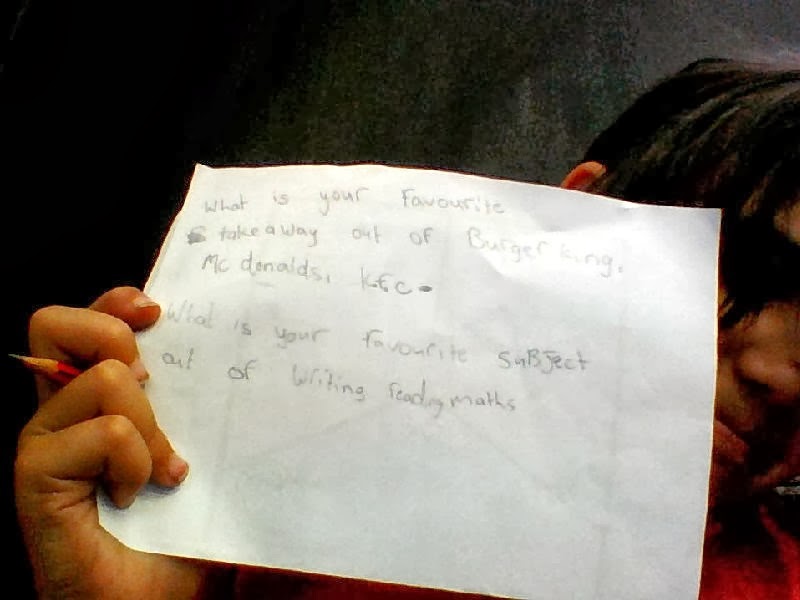 What is your Favourite
takeaway out of Burger king,
Mc donalds, kfc.
What is your favourite SuBject
out of Writing reading maths